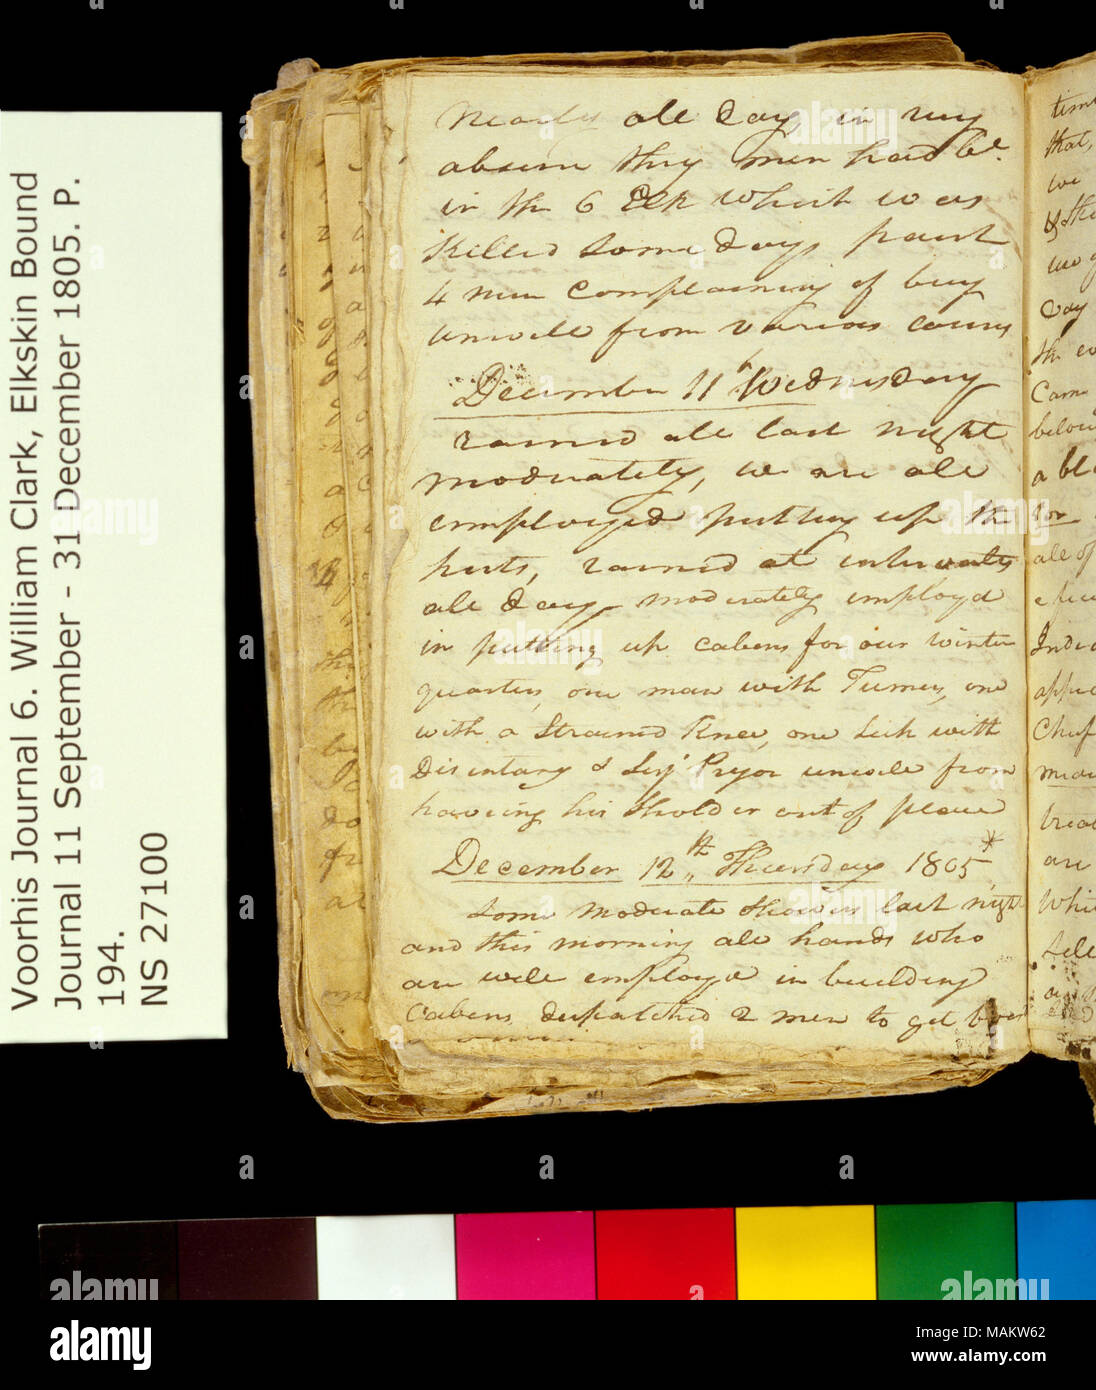 Voorhis Journal 6. William Clark, Elkskin Bound
Journal 11 September - 31 December 1805. P.
194.
NS 27100
Nearly all day, in my
absenc they men had bt.
in the 6 Elk which was
Killed Some days past
4 men complaining of being
unwell from various causes
December 11th Wednesday
rained all last night
moderately, we are all
employed putting up the
huts, rained at intervales
all day moderately employd
in putting up Cabens for our winter
quarters, one man with Turners, one
with a Strained Knee, one Sick with
Disentary & Serjt. Pryor unwell from
haveing his Sholder out of place
December 12th Thursday 1805 *
Some moderate Showers last night
and this morning all hands who
are well employd in building
Cabens, despatched 2 men to get board
time
that,
we
day
the ev
Cam
below
a bl
for
all of
Indi
app
Chief
are
Whi
alamy
a
Image ID: MAKW62
www.alamy.com